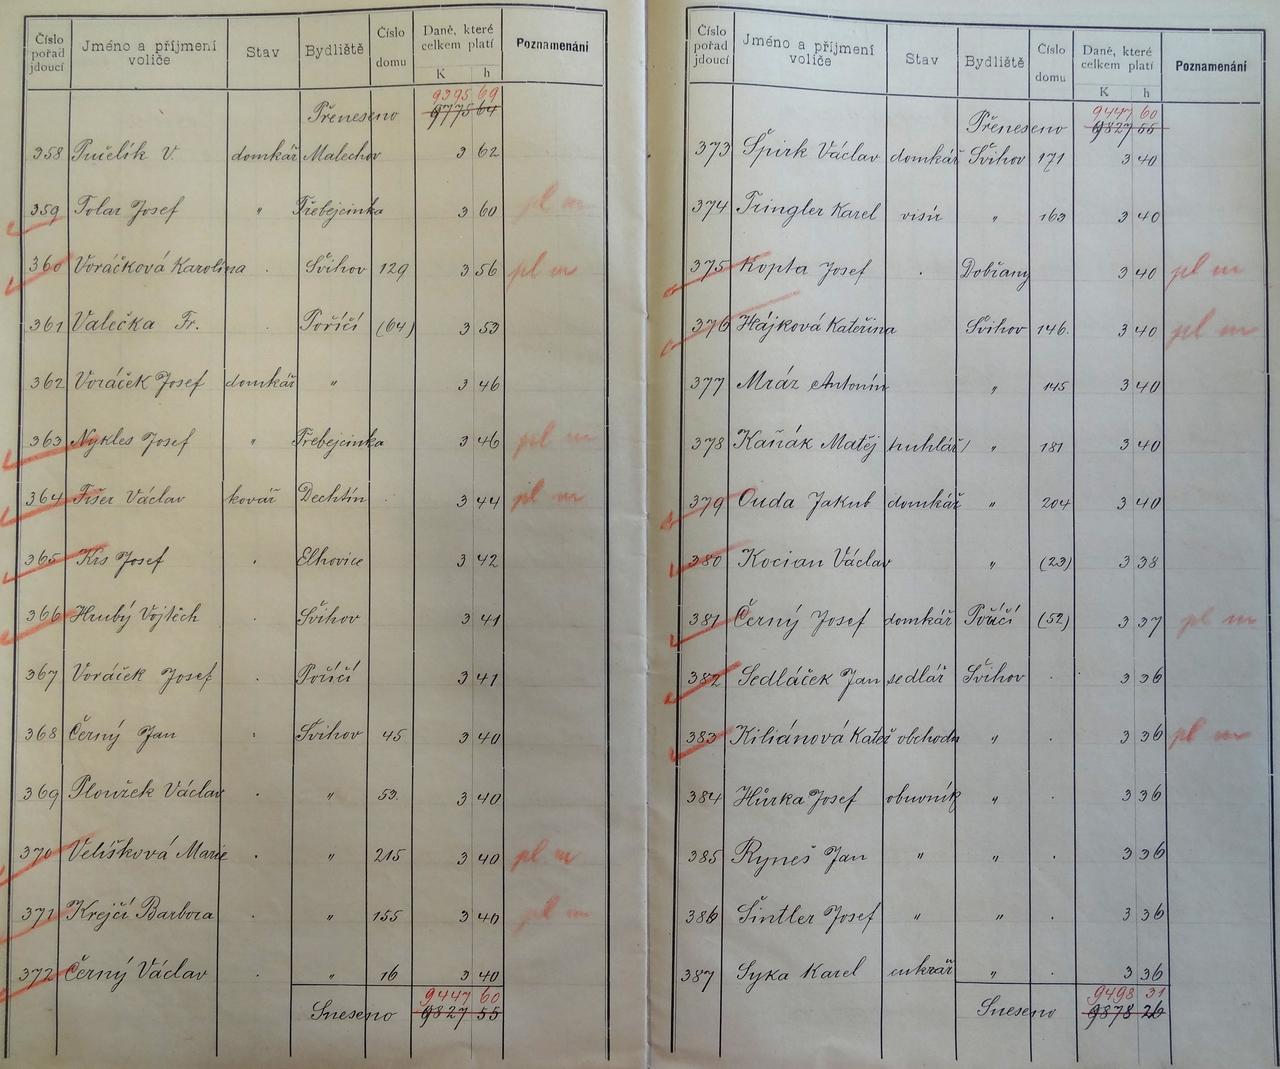 Číslo pořad jdoucí Jméno a příjmení voliče Stav Bydliště Číslo domu Daně, které celkem platí K h Poznamenání
9395 69
Přeneseno 9775 64
358 Pučelík V. domkář Malechov 3 62
359 Tolar Josef " Třebejcinka 3 60 pl m
360 Voráčková Karolina . Švihov 129 3 56 pl m
361 Valečka Fr. . Poříčí (64) 3 53
362 Voráček Josef domkář " 3 46
363 Nykles Josef " Třebejcinka 3 46 pl m
364 Fišer Václav kovář Dechtín . 3 44 pl m
365 Krs Josef . Elhovice 3 42
366 Hrubý Vojtěch Švihov 3 41
367 Voráček Josef . Poříčí 3 41
368 Černý Jan . Švihov 45 3 40
369 Ploužek Václav . " 53. 3 40
370 Velíšková Marie . " 215 3 40 pl m
371 Krejčí Barbora . " 155 3 40 pl m
372 Černý Václav . " 16 3 40
9447 60
Sneseno 9827 55
Číslo pořad jdoucí Jméno a příjmení voliče Stav Bydliště Číslo domu Daně, které celkem platí K h Poznamenání
9447 60
Přeneseno 9827 55
373 Špirk Václav domkář Švihov 171 3 40
374 Tringler Karel visír " 163 3 40
375 Kopta Josef . Dobřany 3 40 pl m
376 Hájková Kateřina Švihov 146. 3 40 pl m
377 Mráz Antonín " 145 3 40
378 Kaňák Matěj truhlář " 181 3 40
379 Ouda Jakub domkář " 204 3 40
380 Kocian Václav " (23) 3 38
381 Černý Josef domkář Poříčí (52) 3 37 pl m
382 Sedláček Jan sedlář Švihov . 3 36
383 Kiliánová Kateř obchodn " . 3 36 pl m
384 Hůrka Josef obuvník " . 3 36
385 Ryneš Jan " " . 3 36
386 Šintler Josef " " . 3 36
387 Syka Karel cukrář " . 3 36
9498 31
Sneseno 9878 26